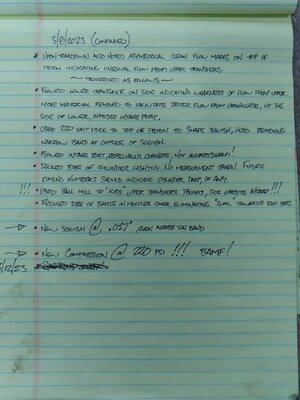 3/9/2023 (CONTINUED)
* UPON TEARDOWN ALSO NOTED ASYMETRICAL CLEAN FLOW MARKS, ON TOP OF
PISTON INDICATING INTERNAL FLOW FROM UPPER TRANSFERS.
~ PROCEEDED AS FOLLOWS ~
• FLOWED LOWER TRANSFER ON SIDE INDICATING WEAKNESS OF FLOW FROM UPPER
MORE MATERIAL REMOVED TO FACILITATE BETTER FLOW FROM CRANKCASE, UP THE
SIDE OF LOWER, OPPOSITE INTAKE PORT.
• USED 220 GRIT STICK TO TOP OF PISTON TO SHAPE SQUISH, ALSO REMOVING
NARROW BAND AT OUTSIDE OF SQUISH.
• FLOWED INTAKE PORT, ESPECIALLY CORNERS, NOT AGGRESSIVELY!
• DECKED BASE OF CYLINDER LIGHTLY, NO MEASUREMENT TAKEN. FUTURE
TIMING NUMBERS SHOULD INDICATE CYLINDER DROP, IF ANY.
!!! • USED BALL MILL TO "KISS" UPPER TRANSFERS POCKETS, SIDE OPPOSITE INTAKE!!!
• REDUCED SIZE OF BAFFLE IN MUFFLER COVER, ELIMINATING "CURL" TOWARDS EXH. PORT.
→ • NEW SQUISH @ .017" EVEN ACROSS THE BAND
→ • NEW COMPRESSION @ 220 PSI !!! BAMF!
/12/23